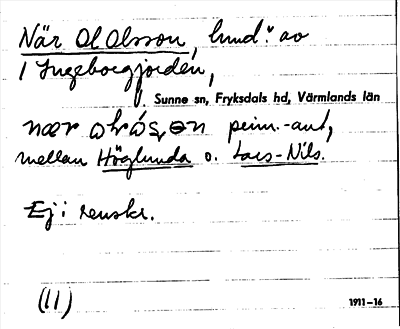 När Ol Olsson, hmd. av
i Ingeborgjorden,
Sunne sn, Fryksdals hd, Värmlands län
mellan Höglunda o. Lars-Nils.
Ej i renskr.
(11)
1911–16